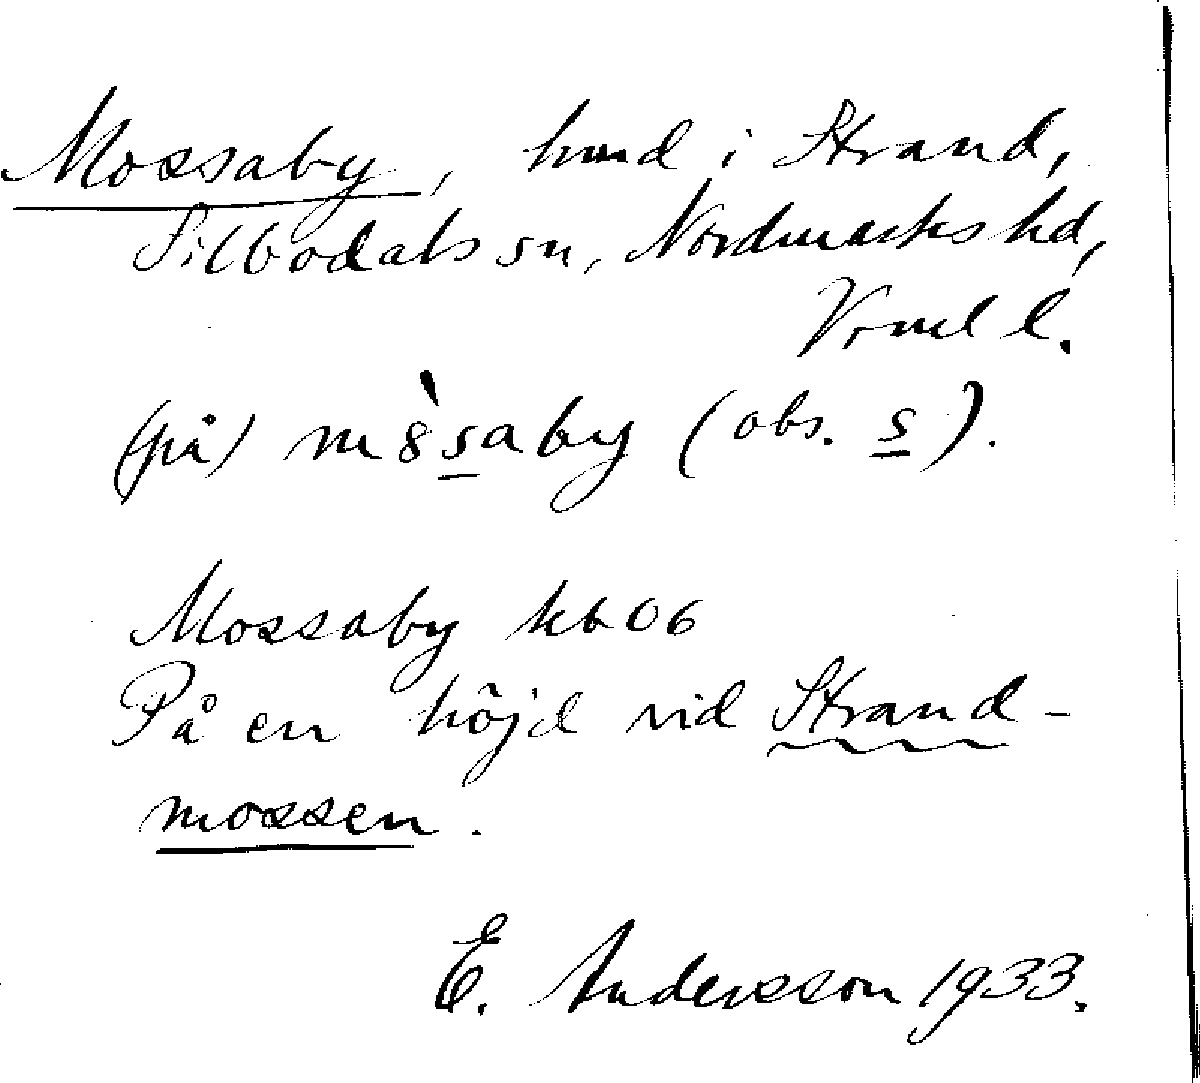 Mossaby, hmd i Strand,
Silbodals sn, Nordmarks hd,
Vrml l.
(på) mòsaby (obs. s).
Mossaby kb 06
På en höjd vid Strand-
mossen.
E. Andersson 1933.